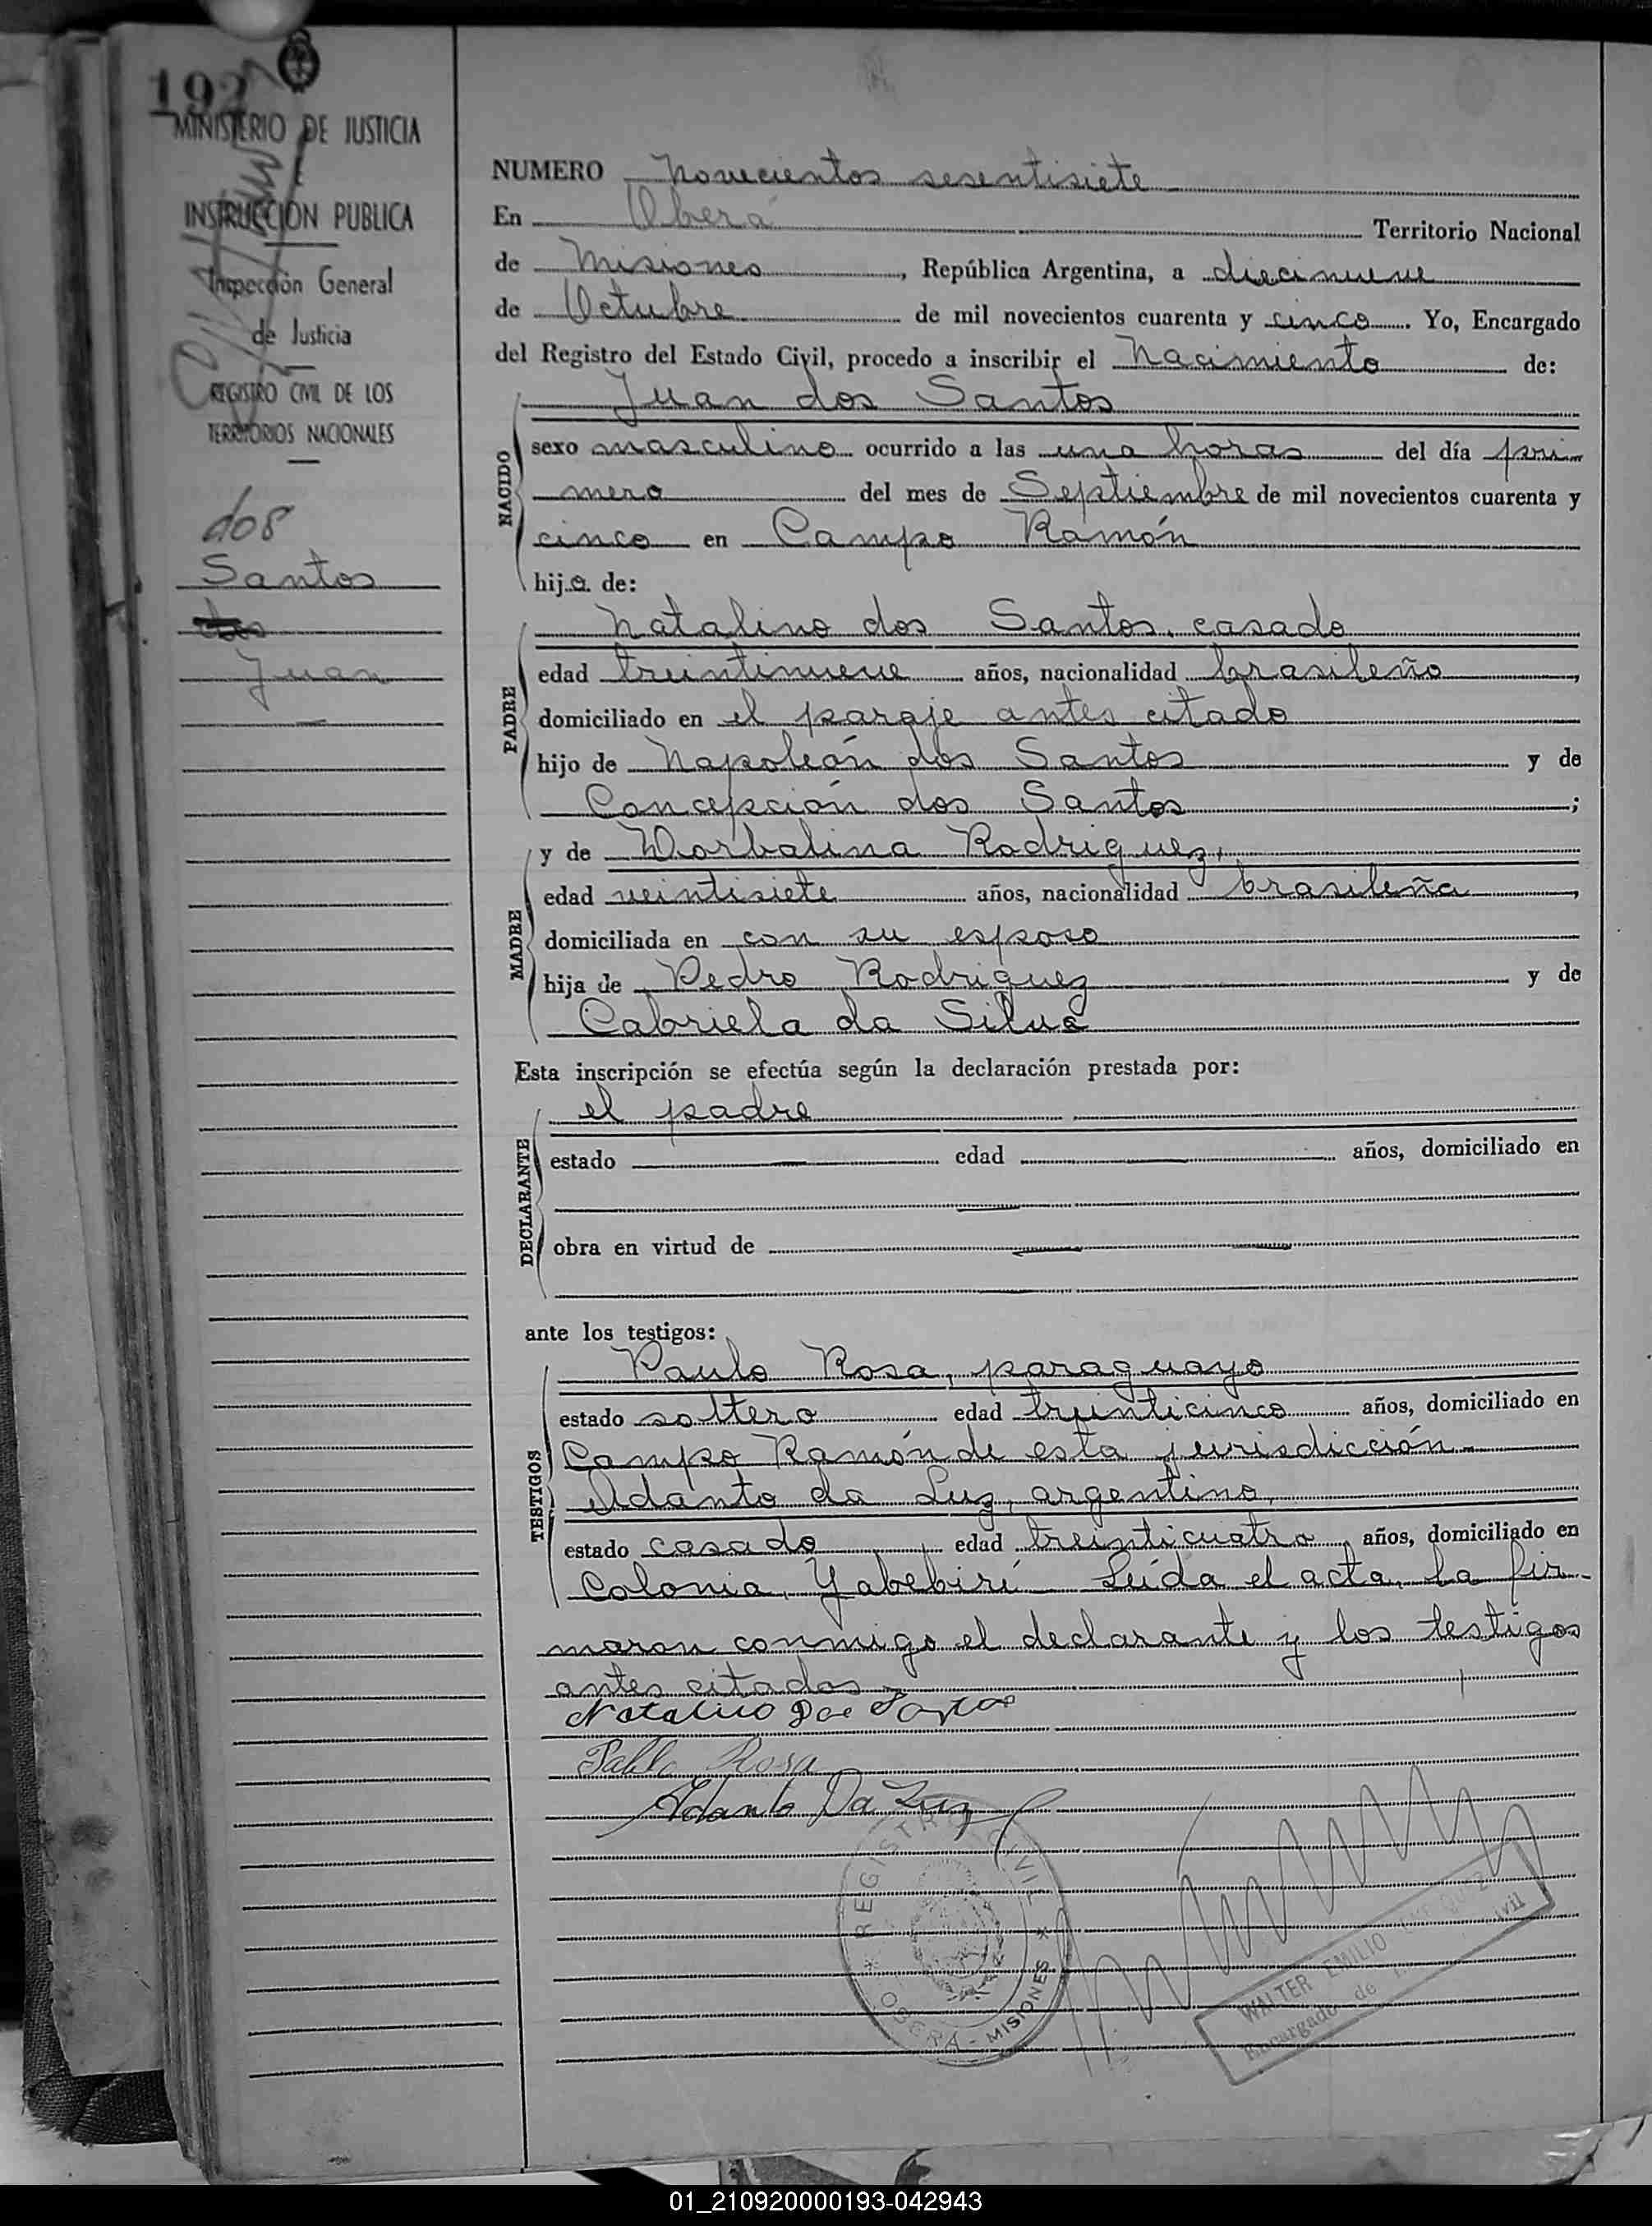 192
MINISTERIO DE JUSTICIA
E
INSTRUCCIÓN PUBLICA
Inspección General
de Justicia
REGISTRO CIVIL DE LOS
TERRITORIOS NACIONALES
dos
Santos
Juan
NUMERO novecientos sesentisiete
En Oberá Territorio Nacional
de Misiones, República Argentina, a diecinueve
de Octubre de mil novecientos cuarenta y cinco. Yo, Encargado
del Registro del Estado Civil, procedo a inscribir el nacimiento de:
Juan dos Santos
NACIDO
sexo masculino ocurrido a las una horas del día pri-
mero del mes de Septiembre de mil novecientos cuarenta y
cinco en Campo Ramón
hijo de:
PADRE
Natalino dos Santos, casado
edad treintinueve años, nacionalidad brasileño,
domiciliado en el paraje antes citado
hijo de Napoleón dos Santos y de
Concepción dos Santos;
MADRE
y de Dorbalina Rodriguez,
edad veintisiete años, nacionalidad brasileña,
domiciliada en con su esposo
hija de Pedro Rodriguez y de
Gabriela da Silva
Esta inscripción se efectúa según la declaración prestada por:
DECLARANTE
el padre
estado edad años, domiciliado en
obra en virtud de
ante los testigos:
TESTIGOS
Paulo Rosa, paraguayo
estado soltero edad treinticinco años, domiciliado en
Campo Ramón de esta jurisdicción-
Adanto da Luz, argentino,
estado casado edad treinticuatro años, domiciliado en
Colonia, Yabebirí Leída el acta, la fir-
maron conmigo el declarante y los testigos
antes citados-
Natalino Dos Santos
Pablo Rosa
Adanto Da Luz
REGISTRO CIVIL
OBERA - MISIONES
WALTER EMILIO
Encargado de Civil
01_210920000193-042943